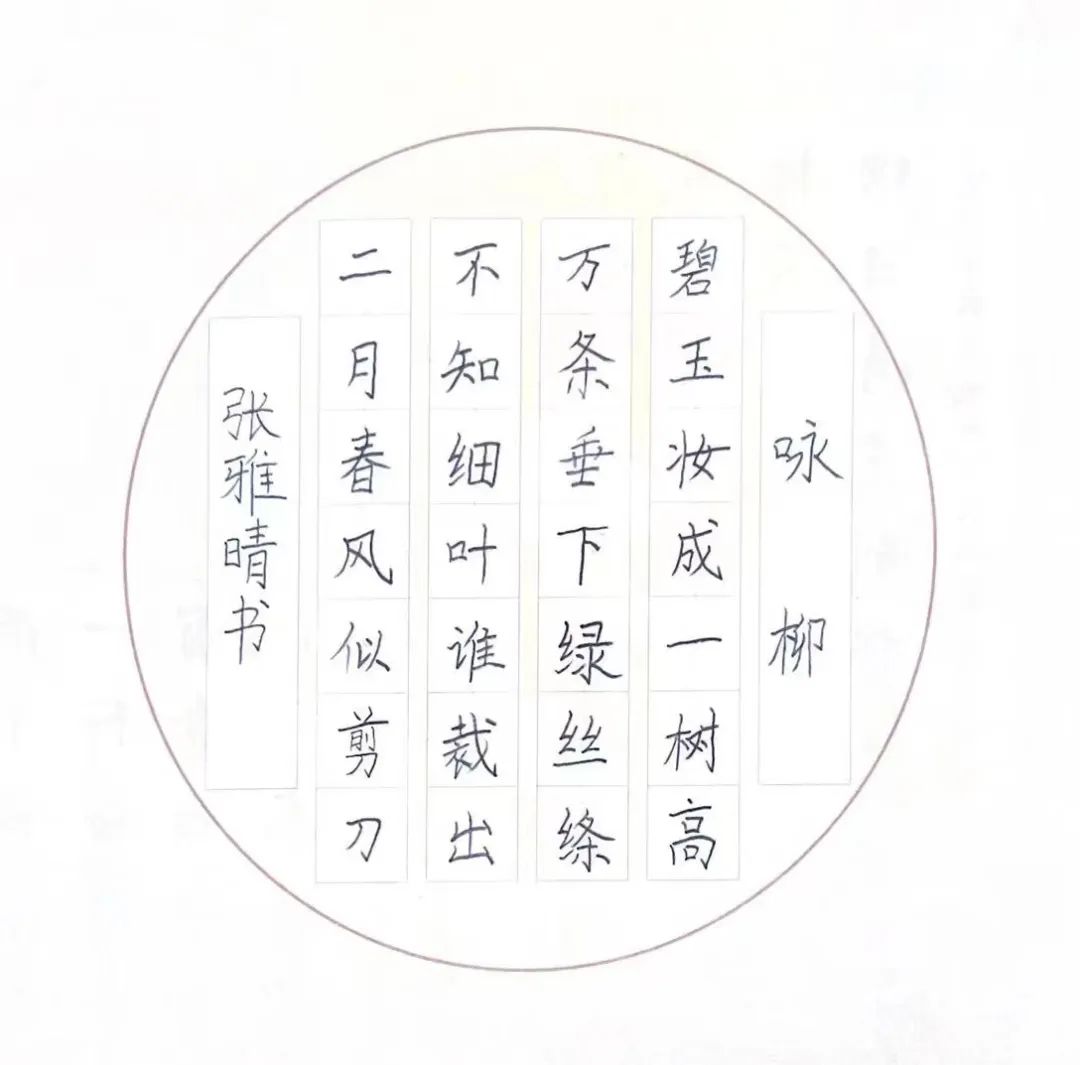 咏柳
碧玉妆成一树高
万条垂下绿丝绦
不知细叶谁裁出
二月春风似剪刀
张雅晴书